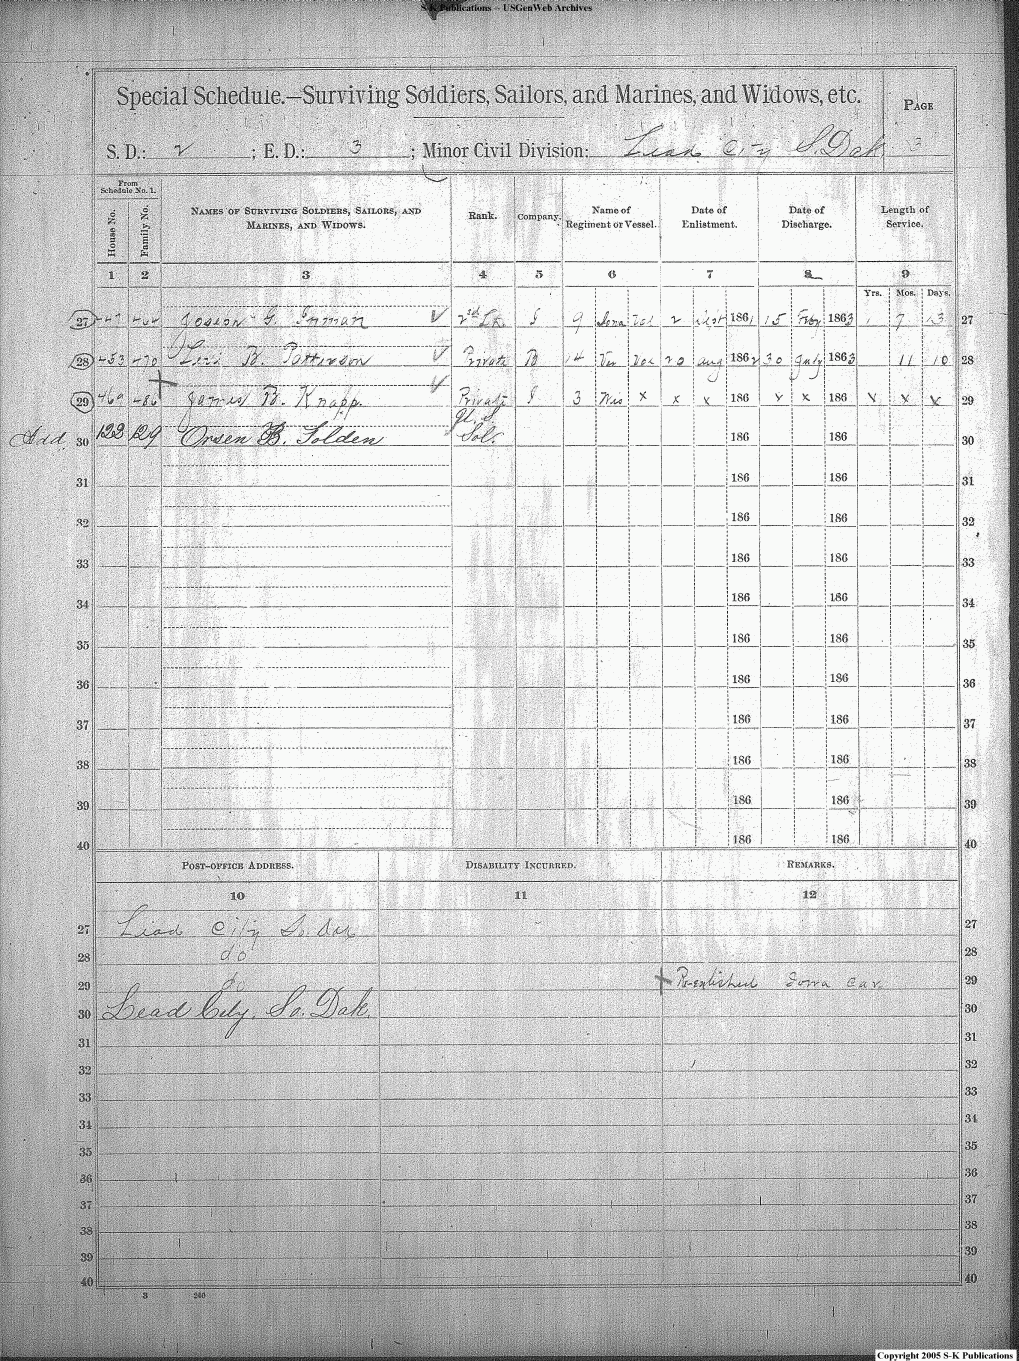 S-K Publications -- USGenWeb Archives
Special Schedule.—Surviving Soldiers, Sailors, and Marines, and Widows, etc.
PAGE
S. D.: 2 ; E. D.: 3 ; Minor Civil Division: Lead City S. Dak 3
From Schedule No. 1.
House No.
Family No.
NAMES OF SURVIVING SOLDIERS, SAILORS, AND MARINES, AND WIDOWS.
Rank.
Company.
Name of Regiment or Vessel.
Date of Enlistment.
Date of Discharge.
Length of Service.
1 2 3 4 5 6 7 8 9
Yrs. Mos. Days.
27 Joseph G. Inman 2nd Lt. I 9 Iowa Vol 2 Sept 1861 15 Feby 1863 1 7 13 27
28 453 470 Levi B. Patterson Private B 14 Ver Vol 20 aug 1862 30 July 1863 11 10 28
29 469 486 James B. Knapp Private I 3 Wis x x x 186 x x 186 x x x 29
Add 30 122 129 Orsen B. Solden Sol. 186 186 30
31 186 186 31
32 186 186 32
33 186 186 33
34 186 186 34
35 186 186 35
36 186 186 36
37 186 186 37
38 186 186 38
39 186 186 39
40 186 186 40
POST-OFFICE ADDRESS. DISABILITY INCURRED. REMARKS.
10 11 12
27 Lead City So. Dak 27
28 do 28
29 do Re-enlisted Iowa Cav. 29
30 Lead City, So. Dak. 30
31 31
32 32
33 33
34 34
35 35
36 36
37 37
38 38
39 39
40 40
3 240
Copyright 2005 S-K Publications